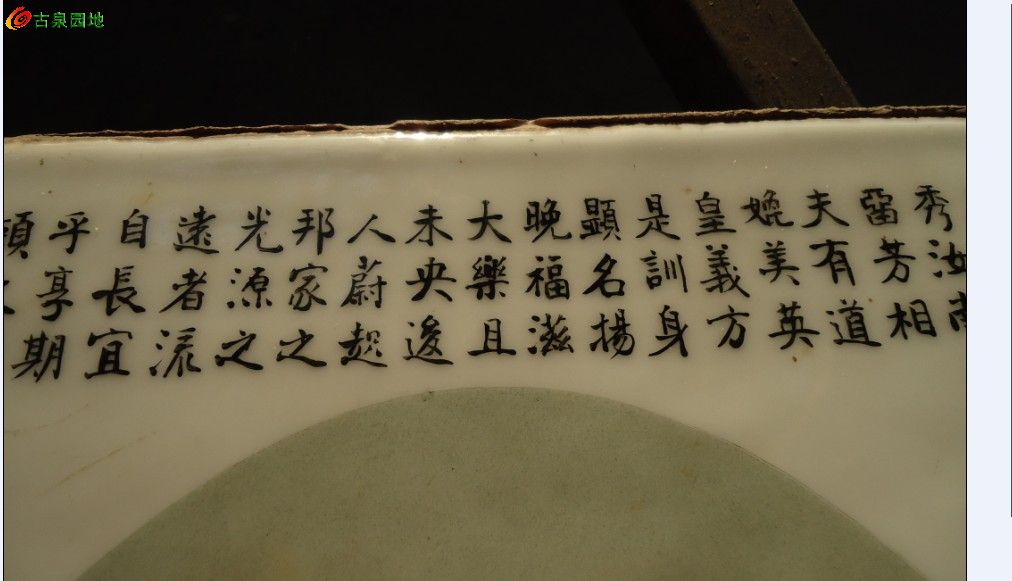 秀汝南
畱芳相
夫有道
媲美英
皇義方
是訓身
顯名揚
晚福滋
大樂且
未央後
人蔚起
邦家之
光源之
遠者流
自長宜
乎享期
頤
古泉园地